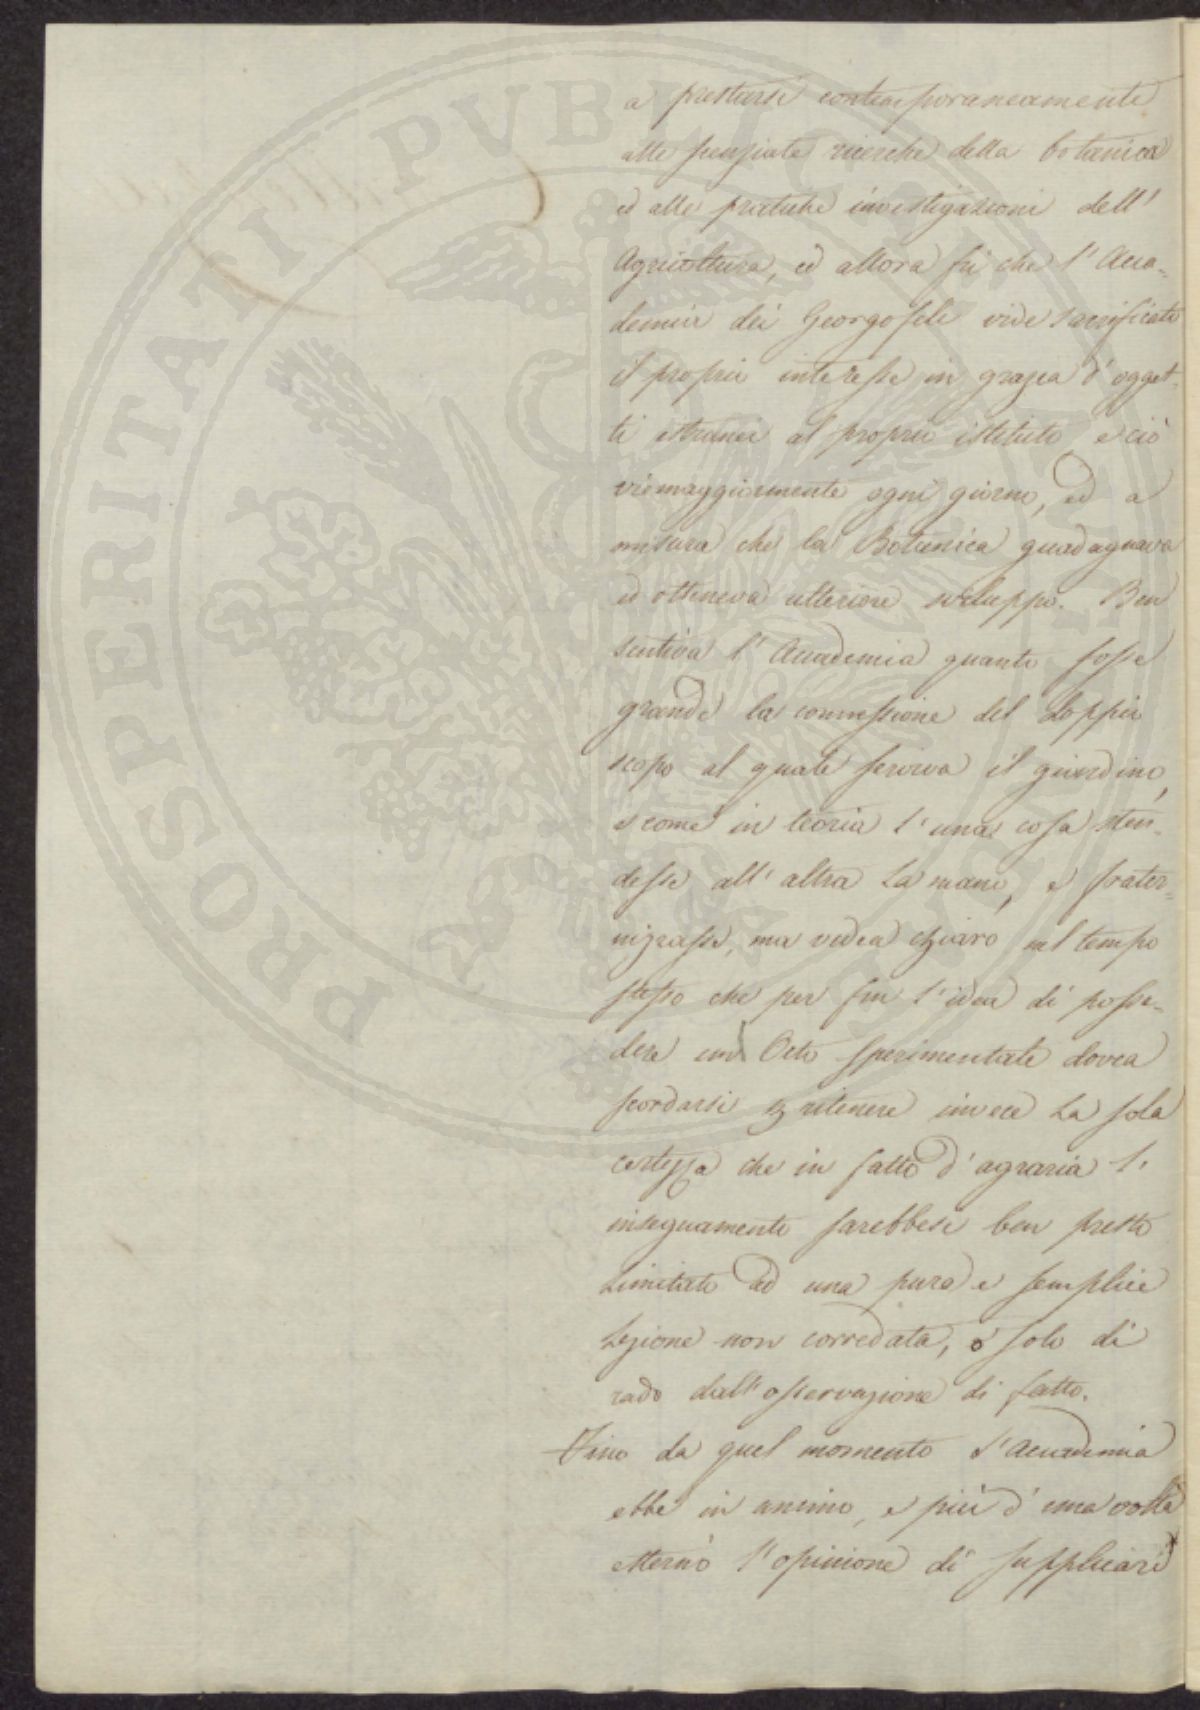 a prestarsi contemporaneamente
alle scenziate ricerche della botanica
ed alle pratiche investigazioni dell'
Agricoltura, ed allora fù che l'Acca-
demia dei Georgofili vide sacrificati
il proprio interesse in grazia d'ogget-
ti estranei al proprio istituto e ciò
viemaggiormente ogni giorno, ed a
misura che la Botanica guadagnava
ed otteneva ulteriore sviluppo. Ben
sentiva l'Accademia quanto fosse
grande la connessione del doppio
scopo al quale serviva il giardino,
e come in teoria l'una cosa sten-
desse all'altra la mano, e frater-
nizzasse, ma vedea chiaro nel tempo
stesso che per fin l'idea di posse-
dere un Orto sperimentale dovea
scordarsi e ritenere invece la sola
certezza che in fatto d'agraria l'
insegnamento sarebbesi ben presto
limitato ad una pura e semplice
Lezione non corredata, o solo di
rado dall'osservazione di fatto.
Fino da quel momento l'Accademia
ebbe in animo, e più d'una volta
esternò l'opinione di supplicare
PROSPERITATI PUBLICAE AUGENDAE